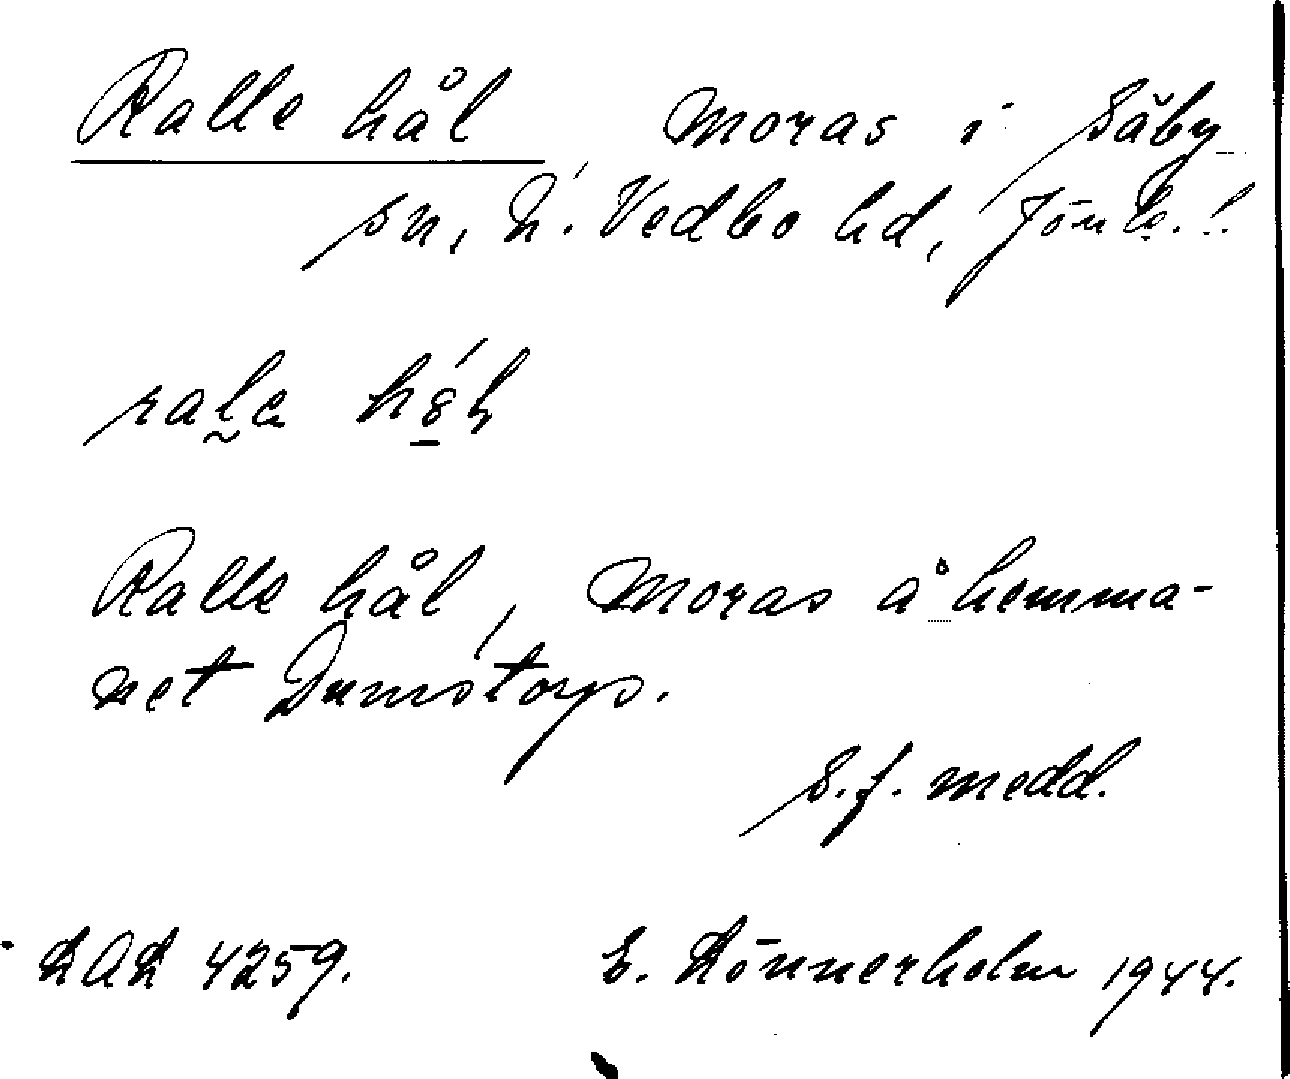 Ralle hål Moras i Säby
sn, N. Vedbo hd, Jönk. l.
Ralle hål, Moras å hemma-
net Dumstorp.
S.f. medd.
LAL 4259. E. Lönnerholm 1944.